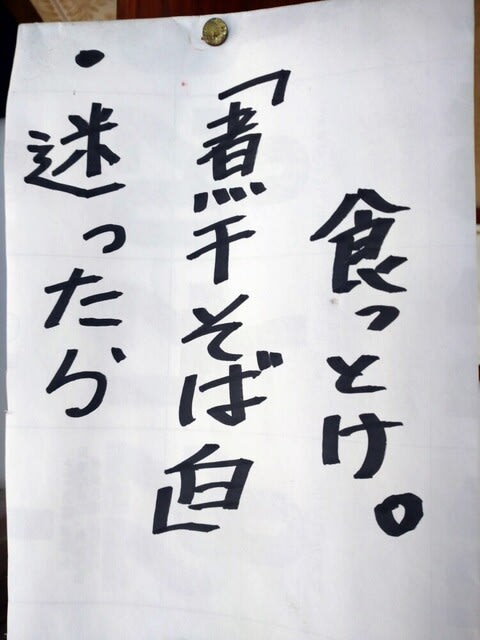 ・迷ったら
「煮干そば白」
食っとけ。